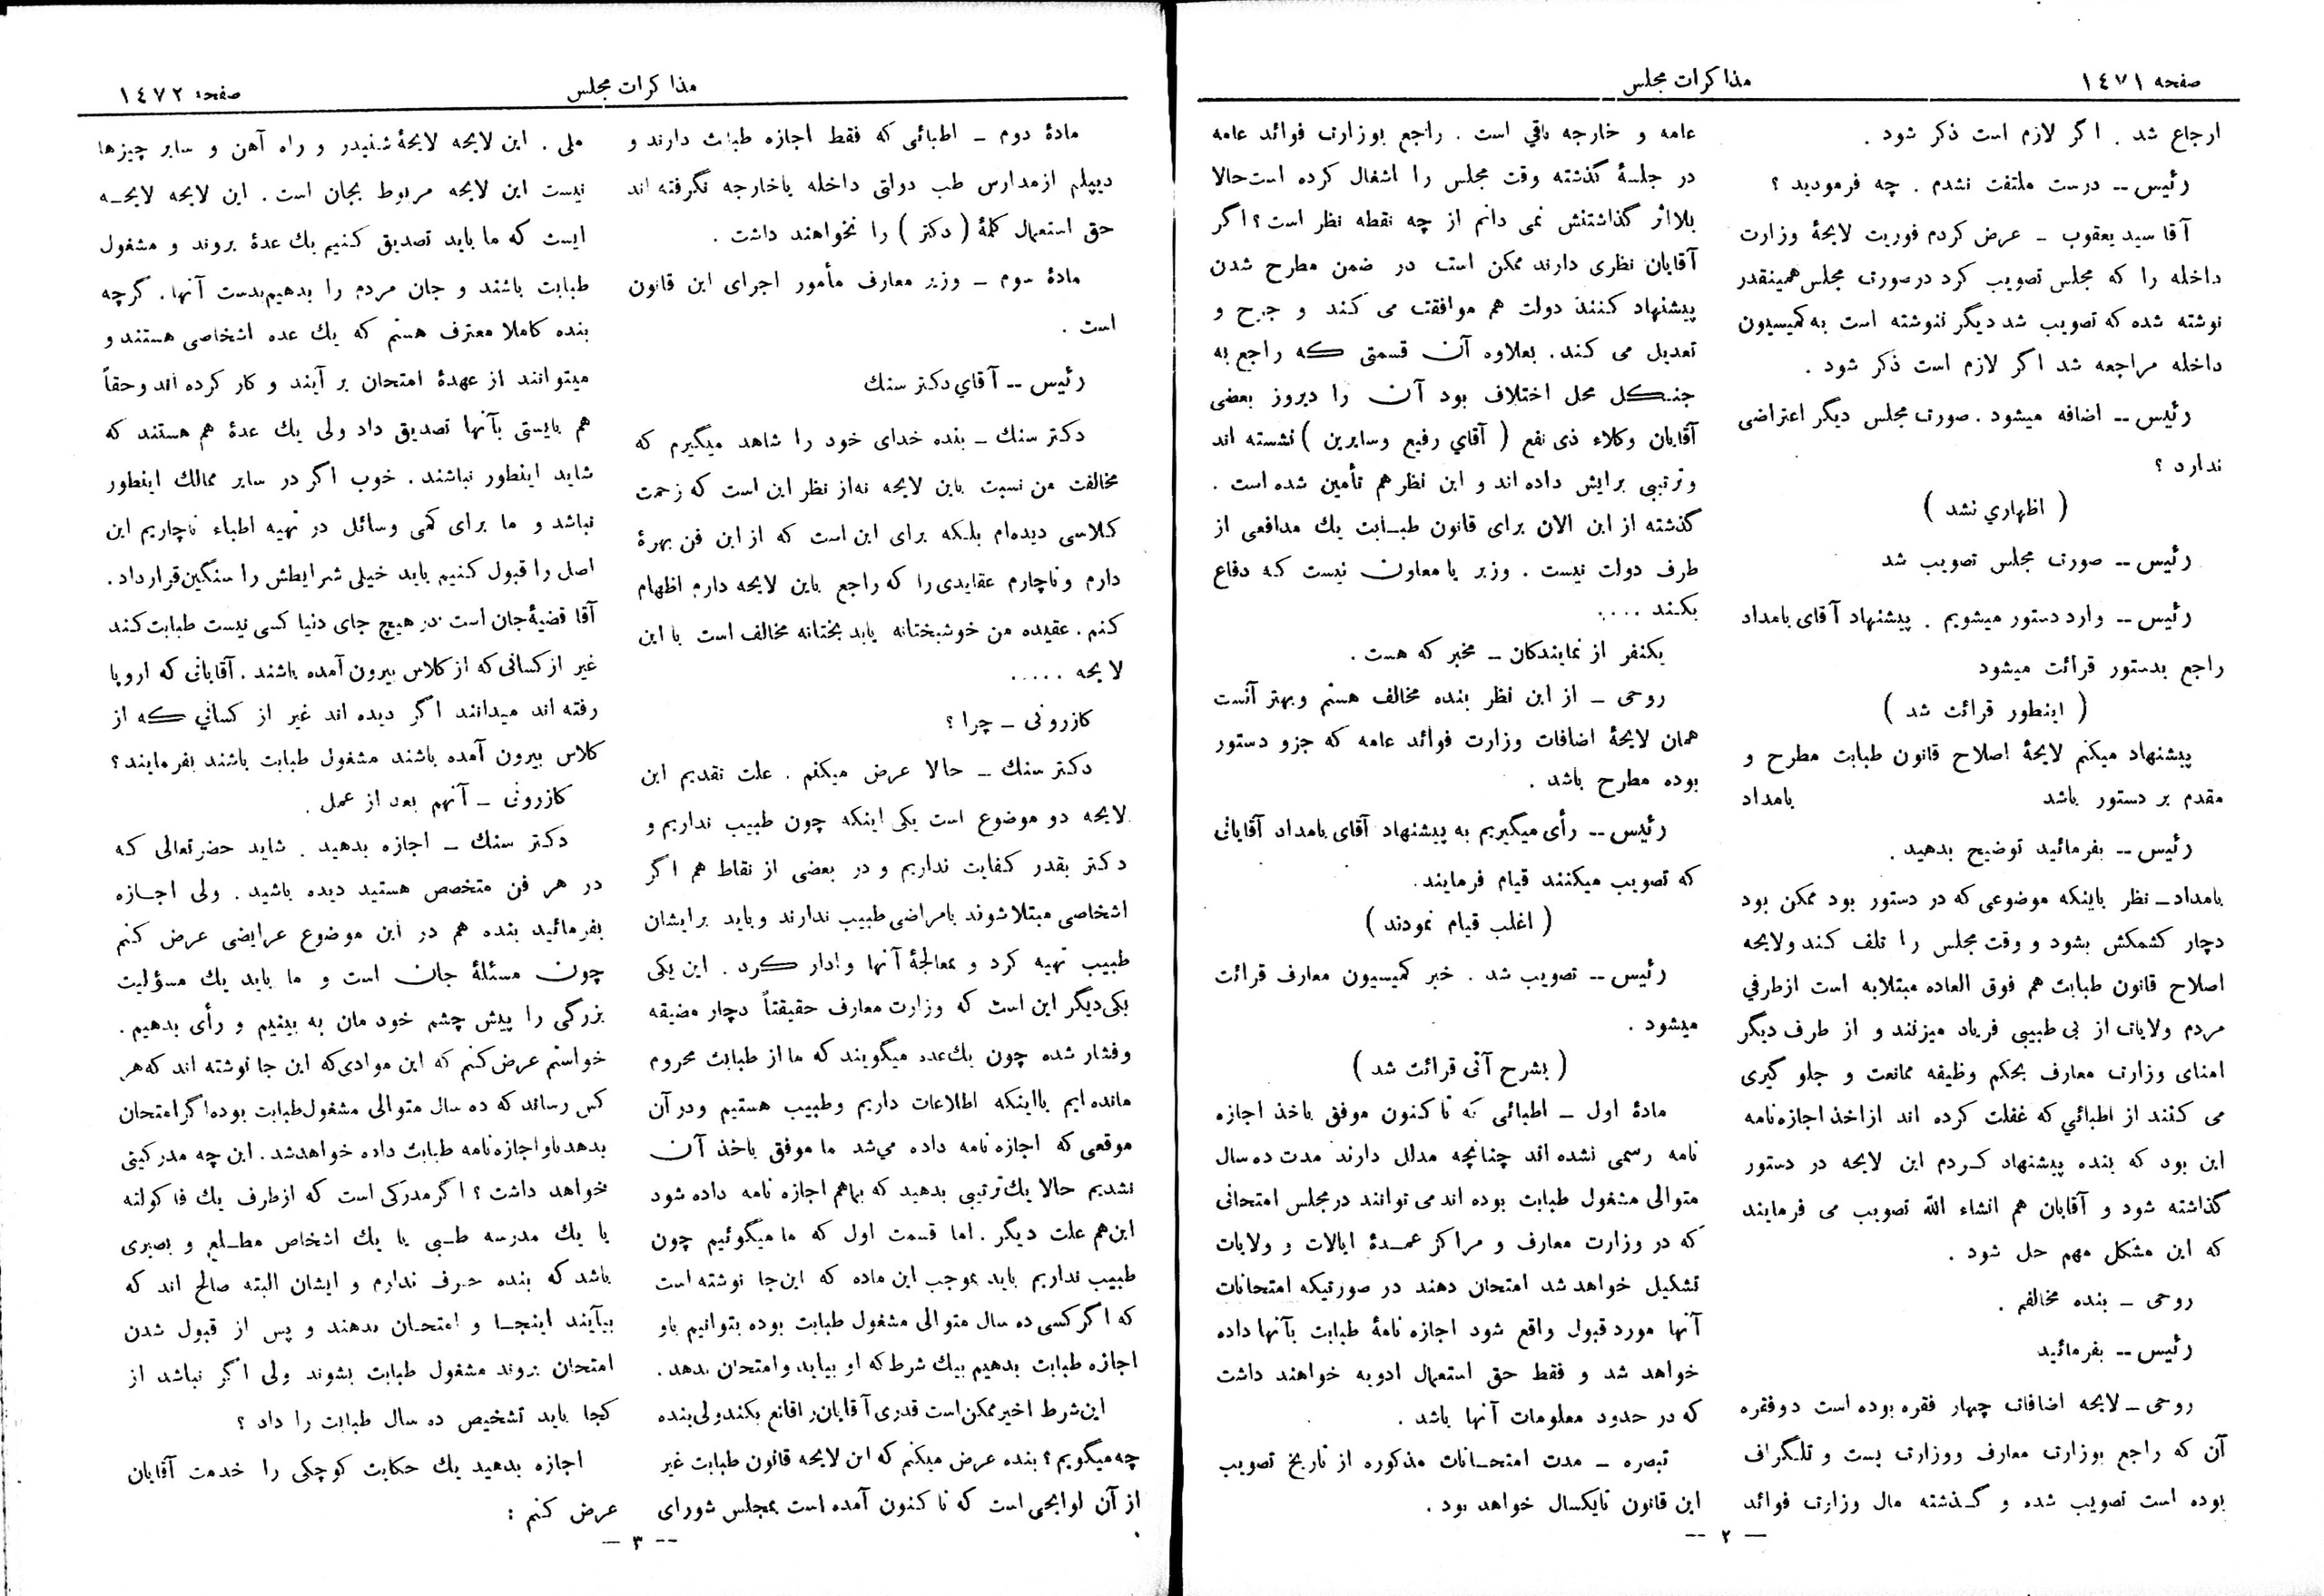 صفحه ١٤٧١
مذاکرات مجلس
ارجاع شد . اگر لازم است ذکر شود .
رئیس -- درست ملتفت نشدم . چه فرمودید ؟
آقا سید یعقوب - عرض کردم فوریت لایحهٔ وزارت
داخله را که مجلس تصویب کرد در صورت مجلس همینقدر
نوشته شده که تصویب شد دیگر ننوشته است به کمیسیون
داخله مراجعه شد اگر لازم است ذکر شود .
رئیس -- اضافه میشود . صورت مجلس دیگر اعتراضی
ندارد ؟
( اظهاری نشد )
رئیس -- صورت مجلس تصویب شد
رئیس -- وارد دستور میشویم . پیشنهاد آقای بامداد
راجع بدستور قرائت میشود
( اینطور قرائت شد )
پیشنهاد میکنم لایحهٔ اصلاح قانون طبابت مطرح و
مقدم بر دستور باشد بامداد
رئیس -- بفرمائید توضیح بدهید .
بامداد - نظر باینکه موضوعی که در دستور بود ممکن بود
دچار کشمکش بشود و وقت مجلس را تلف کند ولایحه
اصلاح قانون طبابت هم فوق العاده مبتلابه است از طرفی
مردم ولایات از بی طبیبی فریاد میزنند و از طرف دیگر
امنای وزارت معارف بحکم وظیفه ممانعت و جلو گیری
می کنند از اطبائی که غفلت کرده اند از اخذ اجازه نامه
این بود که بنده پیشنهاد کردم این لایحه در دستور
گذاشته شود و آقایان هم انشاء الله تصویب می فرمایند
که این مشکل مهم حل شود .
روحی - بنده مخالفم .
رئیس -- بفرمائید
روحی - لایحه اضافات چهار فقره بوده است دو فقره
آن که راجع بوزارت معارف ووزارت پست و تلگراف
بوده است تصویب شده و گذشته مال وزارت فوائد
عامه و خارجه باقی است . راجع بوزارت فوائد عامه
در جلسهٔ گذشته وقت مجلس را اشغال کرده است حالا
بلااثر گذاشتنش نمی دانم از چه نقطه نظر است ؟ اگر
آقایان نظری دارند ممکن است در ضمن مطرح شدن
پیشنهاد کنند دولت هم موافقت می کند و جرح و
تعدیل می کند . بعلاوه آن قسمتی که راجع به
جنگل محل اختلاف بود آن را دیروز بعضی
آقایان وکلاء ذی نفع ( آقای رفیع وسایرین ) نشسته اند
و ترتیبی برایش داده اند و این نظر هم تأمین شده است .
گذشته از این الان برای قانون طبابت یك مدافعی از
طرف دولت نیست . وزیر یا معاون نیست که دفاع
بکند . . . .
یکنفر از نمایندکان - مخبر که هست .
روحی - از این نظر بنده مخالف هستم و بهتر آنست
همان لایحهٔ اضافات وزارت فوائد عامه که جزو دستور
بوده مطرح باشد .
رئیس -- رأی میگیریم به پیشنهاد آقای بامداد آقایانی
که تصویب میکنند قیام فرمایند .
( اغلب قیام نمودند )
رئیس -- تصویب شد . خبر کمیسیون معارف قرائت
میشود .
( بشرح آتی قرائت شد )
مادهٔ اول - اطبائی که تا کنون موفق باخذ اجازه
نامه رسمی نشده اند چنانچه مدلل دارند مدت ده سال
متوالی مشغول طبابت بوده اند می توانند در مجلس امتحانی
که در وزارت معارف و مراکز عمدهٔ ایالات و ولایات
تشکیل خواهد شد امتحان دهند در صورتیکه امتحانات
آنها مورد قبول واقع شود اجازه نامهٔ طبابت بآنها داده
خواهد شد و فقط حق استعمال ادویه خواهند داشت
که در حدود معلومات آنها باشد .
تبصره - مدت امتحانات مذکوره از تاریخ تصویب
این قانون تایکسال خواهد بود .
— ٢ --
مذاکرات مجلس
صفحه ١٤٧٢
مادهٔ دوم - اطبائی که فقط اجازه طبابت دارند و
دیپلم از مدارس طب دولتی داخله یا خارجه نگرفته اند
حق استعمال کلمهٔ ( دکتر ) را نخواهند داشت .
مادهٔ سوم - وزیر معارف مأمور اجرای این قانون
است .
رئیس -- آقای دکتر سنك
دکتر سنك - بنده خدای خود را شاهد میگیرم که
مخالفت من نسبت باین لایحه نه از نظر این است که زحمت
کلاسی دیده ام بلکه برای این است که از این فن بهرهٔ
دارم و ناچارم عقایدی را که راجع باین لایحه دارم اظهام
کنم . عقیده من خوشبختانه یابد بختانه مخالف است با این
لایحه . . . . .
کازرونی - چرا ؟
دکتر سنك - حالا عرض میکنم . علت تقدیم این
لایحه دو موضوع است یکی اینکه چون طبیب نداریم و
دکتر بقدر کفایت نداریم و در بعضی از نقاط هم اگر
اشخاصی مبتلا شوند بامراضی طبیب ندارند و باید برایشان
طبیب تهیه کرد و بمعالجهٔ آنها وادار کرد . این یکی
یکی دیگر این است که وزارت معارف حقیقتاً دچار مضیقه
وفشار شده چون یك عده میگویند که ما از طبابت محروم
مانده ایم با اینکه اطلاعات داریم وطبیب هستیم ودر آن
موقعی که اجازه نامه داده می شد ما موفق باخذ آن
نشدیم حالا یك ترتیبی بدهید که بما هم اجازه نامه داده شود
این هم علت دیگر . اما قسمت اول که ما میگوئیم چون
طبیب نداریم باید بموجب این ماده که این جا نوشته است
که اگر کسی ده سال متوالی مشغول طبابت بوده بتوانیم باو
اجازه طبابت بدهیم بیك شرط که او بیاید و امتحان بدهد .
این شرط اخیر ممکن است قدری آقایان را قانع بکند ولی بنده
چه میگویم ؟ بنده عرض میکنم که این لایحه قانون طبابت غیر
از آن لوایحی است که تا کنون آمده است بمجلس شورای
ملی . این لایحه لایحهٔ شنیدر و راه آهن و سایر چیزها
نیست این لایحه مربوط بجان است . این لایحه لایحه
ایست که ما باید تصدیق کنیم یك عدهٔ بروند و مشغول
طبابت باشند و جان مردم را بدهیم بدست آنها . گرچه
بنده کاملا معترف هستم که یك عده اشخاصی هستند و
میتوانند از عهدهٔ امتحان بر آیند و کار کرده اند و حقاً
هم بایستی بآنها تصدیق داد ولی یك عدهٔ هم هستند که
شاید اینطور نباشند . خوب اگر در سایر ممالك اینطور
نباشد و ما برای کمی وسائل در تهیه اطباء ناچاریم این
اصل را قبول کنیم باید خیلی شرایطش را سنگین قرارداد .
آقا قضیهٔ جان است در هیچ جای دنیا کسی نیست طبابت کند
غیر از کسانی که از کلاس بیرون آمده باشند . آقایانی که اروپا
رفته اند میدانند اگر دیده اند غیر از کسانی که از
کلاس بیرون آمده باشند مشغول طبابت باشند بفرمایند ؟
کازرونی - آنهم بعد از عمل .
دکتر سنك - اجازه بدهید . شاید حضرتعالی که
در هر فن متخصص هستید دیده باشید . ولی اجازه
بفرمائید بنده هم در این موضوع عرایضی عرض کنم
چون مسئلهٔ جان است و ما باید یك مسؤلیت
بزرگی را پیش چشم خود مان به بینیم و رأی بدهیم .
خواستم عرض کنم که این موادی که این جا نوشته اند که هر
کس رساند که ده سال متوالی مشغول طبابت بوده اگر امتحان
بدهد باو اجازه نامه طبابت داده خواهد شد . این چه مدرکیتی
خواهد داشت ؟ اگر مدرکی است که از طرف یك فاکولته
یا یك مدرسه طبی یا یك اشخاص مطلع و بصیری
باشد که بنده حرف ندارم و ایشان البته صالح اند که
بیآیند اینجا و امتحان بدهند و پس از قبول شدن
امتحان بروند مشغول طبابت بشوند ولی اگر نباشد از
کجا باید تشخیص ده سال طبابت را داد ؟
اجازه بدهید یك حکایت کوچکی را خدمت آقایان
عرض کنم :
— ٣ --